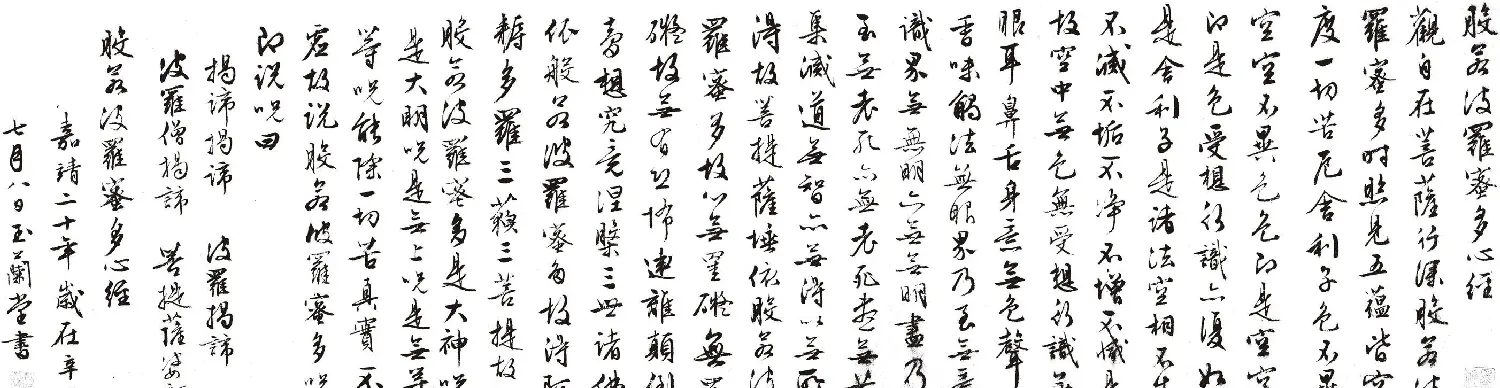 般若波羅蜜多心經
觀自在菩薩行深般若波
羅蜜多時照見五蘊皆空
度一切苦厄舍利子色不異
空空不異色色即是空空
即是色受想行識亦復如
是舍利子是諸法空相不生
不滅不垢不淨不增不減是
故空中無色無受想行識無
眼耳鼻舌身意無色聲
香味觸法無眼界乃至無意
識界無無明亦無無明盡乃
至無老死亦無老死盡無苦
集滅道無智亦無得以無所
得故菩提薩埵依般若波
羅蜜多故心無罣礙無罣
礙故無有恐怖遠離顛倒
夢想究竟涅槃三世諸佛
依般若波羅蜜多故得阿
耨多羅三藐三菩提故
般若波羅蜜多是大神呪
是大明呪是無上呪是無等
等呪能除一切苦真實不
虛故說般若波羅蜜多呪
即說呪曰
揭諦揭諦 波羅揭諦
波羅僧揭諦 菩提薩婆訶
般若波羅蜜多心經
嘉靖二十年歲在辛
七月八日玉蘭堂書